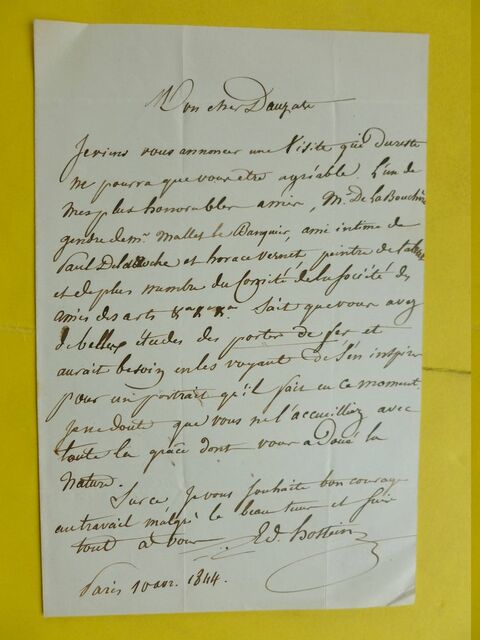 Mon cher Dauzats
Je viens vous annoncer une Visite qui Dureste
ne pourra que vous etre agréable. L'un de
mes plus honorables amis, M. De La Bouch
gendre de m. Mallet le Banquier, ami intime de
Paul Delaroche et horace vernet, peintre de
et de plus membre du Comité de la Société des
amis des arts &a &a &a. Sait que vous avez
de belles études des portes de fer et
aurait besoin en les voyant de s'en inspirer
pour un portrait qu'il fait en ce moment
Je ne doute que vous ne l'accueilliez avec
toute la grâce dont vous a Doué la
Nature.
Sur ce Je vous souhaite bon courage
au travail malgré le beau tems et suis
tout a vous Ed hostein
Paris 10 avr. 1844.